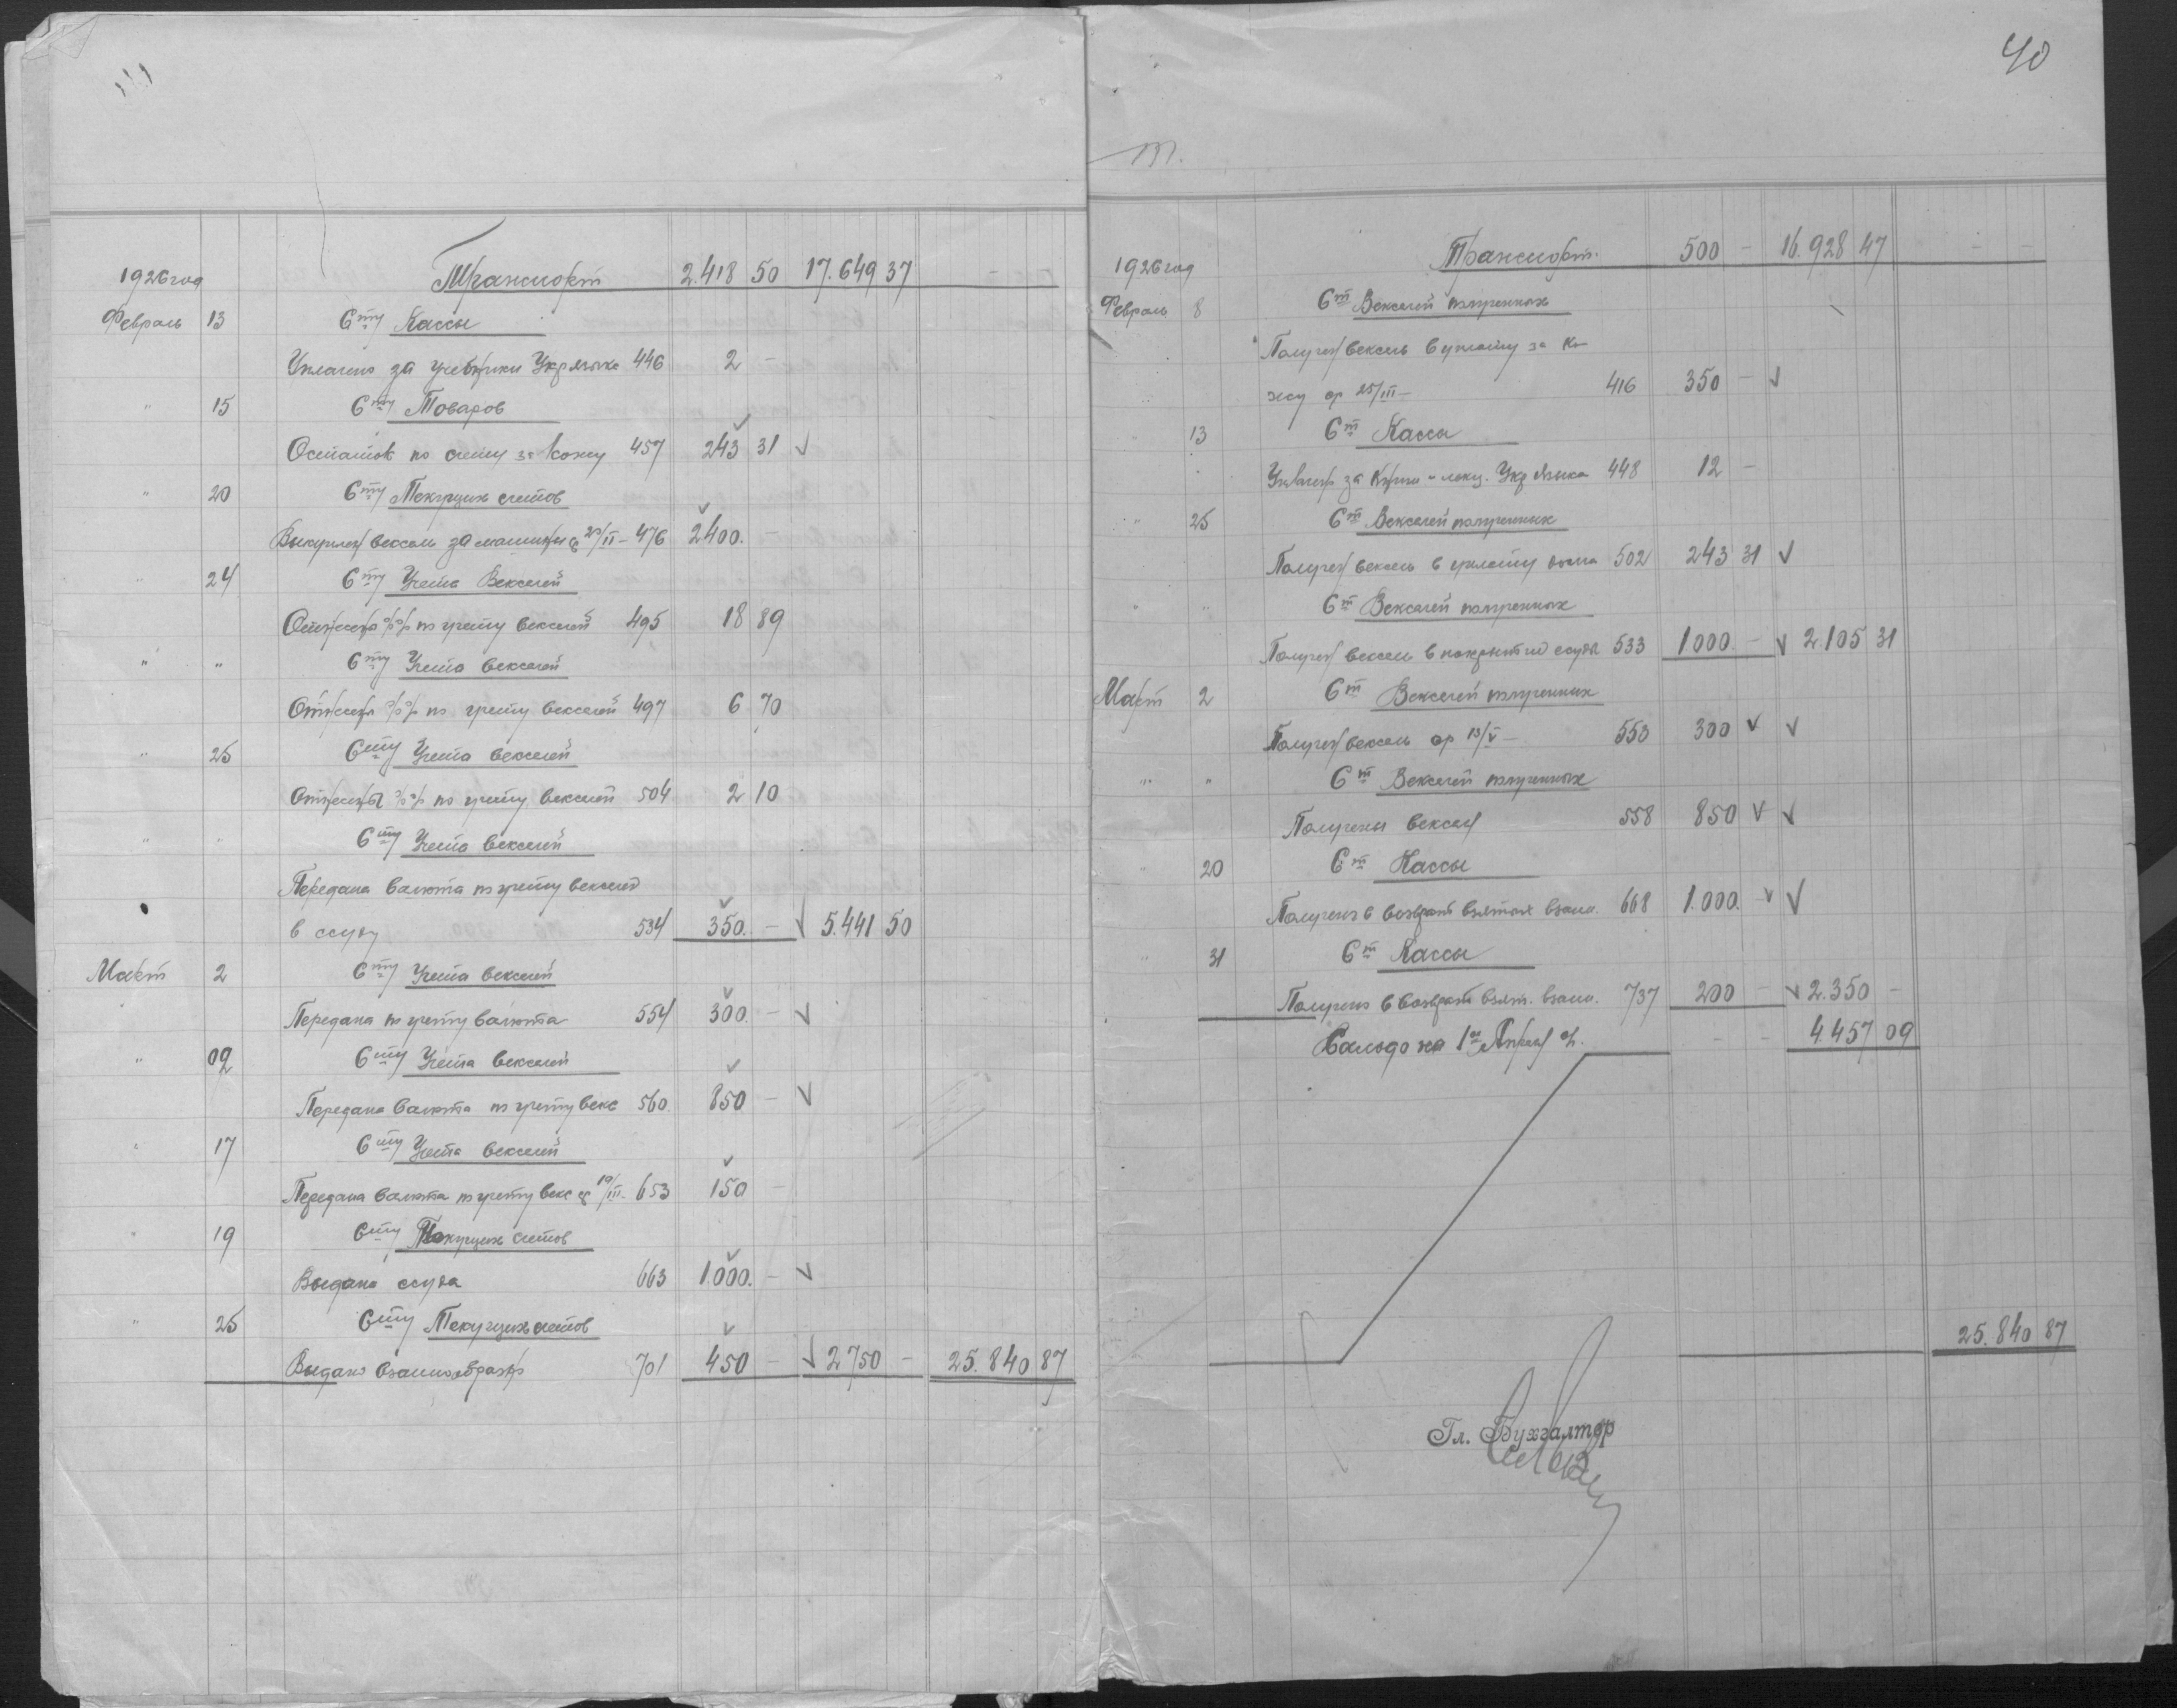 Транспорт 2.418 50 17.649 37 -
1926 год
Февраль 13 Сту Кассы
Уплачено за учебники Укр языка 446 2 -
" 15 Сту Товаров
Остаток по счету за кожу 457 243 31 √
" 20 Сту Текущих счетов
Выкуплен вексель за машины ср 20/II - 476 2400.
" 24 Сту Учета Векселей
Отнесены %% по учету векселей 495 18 89
" " Сту Учета векселей
Отнесены %% по учету векселей 497 6 70
" 25 Сту Учета векселей
Отнесены %% по учету векселей 504 2 10
" " Сту Учета векселей
Передана валюта по учету векселей
в ссуду 534 350. - √ 5.441 50
Март 2 Сту Учета векселей
Передана по учету валюта 554 300. - √
" 09 Сту Учета векселей
Передана валюта по учету векс 560. 850 - √
" 17 Сту Учета векселей
Передана валюта по учету векс ср 10/III - 653 150 -
" 19 Сту Текущих счетов
Выдана ссуда 663 1.000. - √
" 25 Сту Текущих счетов
Выдано взаимообразно 701 450 - √ 2750 - 25.840 87
40
Транспорт. 500 - 16.928 47 - -
1926 год
Февраль 8 Ст Векселей полученных
Получен вексель в уплату за ко-
жу ср 25/III - 416 350 - √
" 13 Ст Кассы
языка 448 12 -
" 25 Ст Векселей полученных
Получен вексель в уплату 502 243 31 √
" " Ст Векселей полученных
Получен вексель в покрытие ссуды 533 1000. - √ 2.105 31
Март 2 Ст Векселей полученных
Получен вексель ср 13/V - 553 300 √ √
" " Ст Векселей полученных
Получены векселя 558 850 √ √
" 20 Ст Кассы
Получено в возврат взятых взаим. 668 1.000. - √ √
" 31 Ст Кассы
Получено в возврат взят. взаим. 737 200 - √ 2.350 -
Сальдо на 1ое Апреля - - 4.457 09
25.840 87
Гл. Бухгалтер